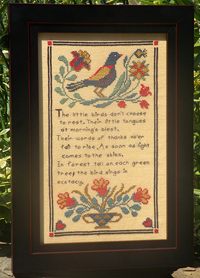 The little birds don't choose
to rest. Their little tongues
at morning's blest.
Their words of thanks ne'er
fail to rise, As soon as light
comes to the skies.
In forest tall on each green
tree the bird sings in
ecstacy.